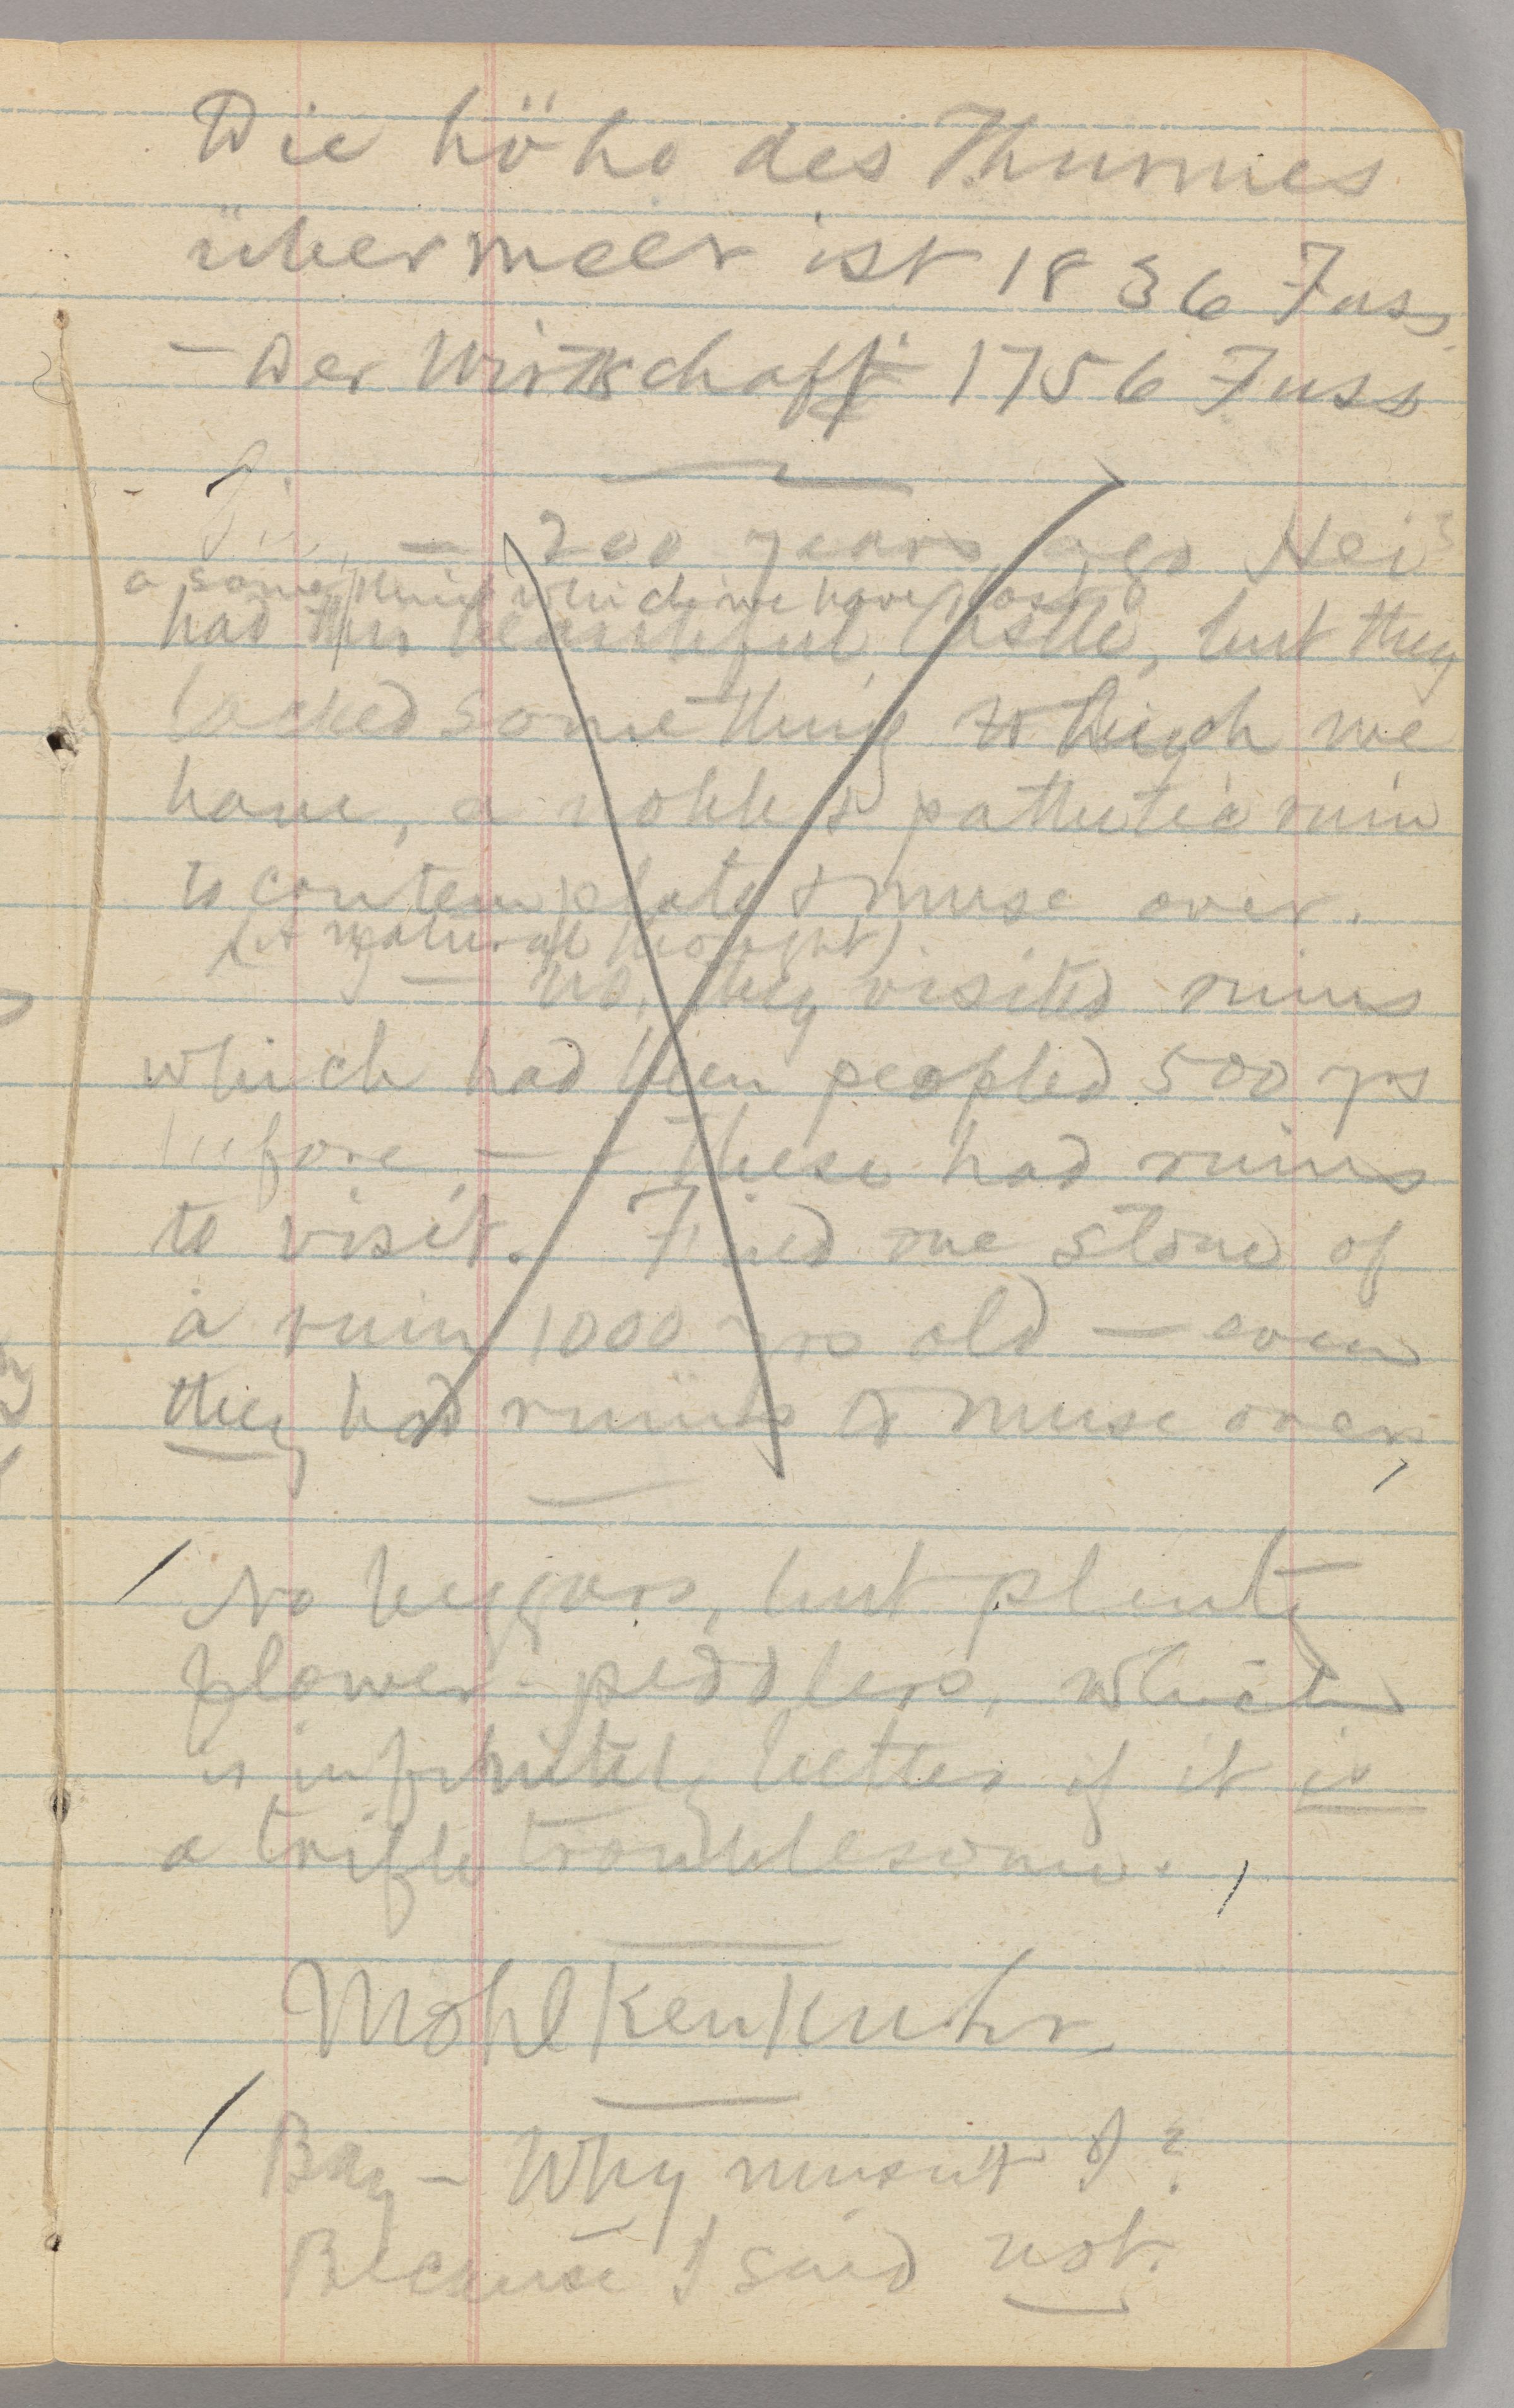 Die höhe des Thurmes
über meer ist 1836 Fuss
— Der Wirthschaft 1756 Fuss
— 200 years ago Hei
a something which we have
had this beautiful Castle, but they
lacked something which we
have, a noble & pathetic ruin
to contemplate & muse over.
(A natural thought)
— No, they visited ruins
which had been peopled 500 yrs
before — these had ruins
to visit. Find one stone of
a ruin 1000 yrs old — even
they had ruins to muse over,
No beggars, but plenty
flower-peddlers, which
is infinitely better if it is
a trifle troublesome.
Mohlkenkuhr
Bay — Why musn't I?
Because I said not.